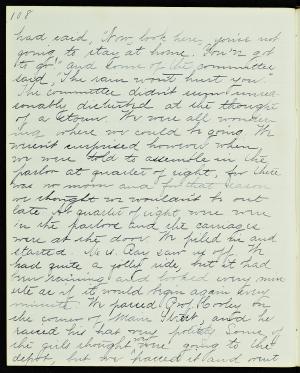 108
had said, "Now look here, you're not
going to stay at home. You'v got
to go" and some of the committee
said, "The rain won't hurt you."
The committee didn't seem unrea-
sonably disturbed at the thought
of a storm. We were all wonder-
ing where we could be going. We
weren't surprised however when
we were told to assemble in the
parlor at quarter of eight, for there
was no moon and for that reason
we thought we wouldn't be out
late. At quarter of eight, we were
in the parlors and the carriages
were at the door. We filed in and
started. Miss Ray saw us off. We
had quite a jolly ride, but it had
been raining and looked every min-
ute as if it would begin again every
minute. We passed Prof. Cooley on
the corner of Main Street, and he
raised his hat very politely. Some of
the girls thought we were going to the
depot, but we passed it and went